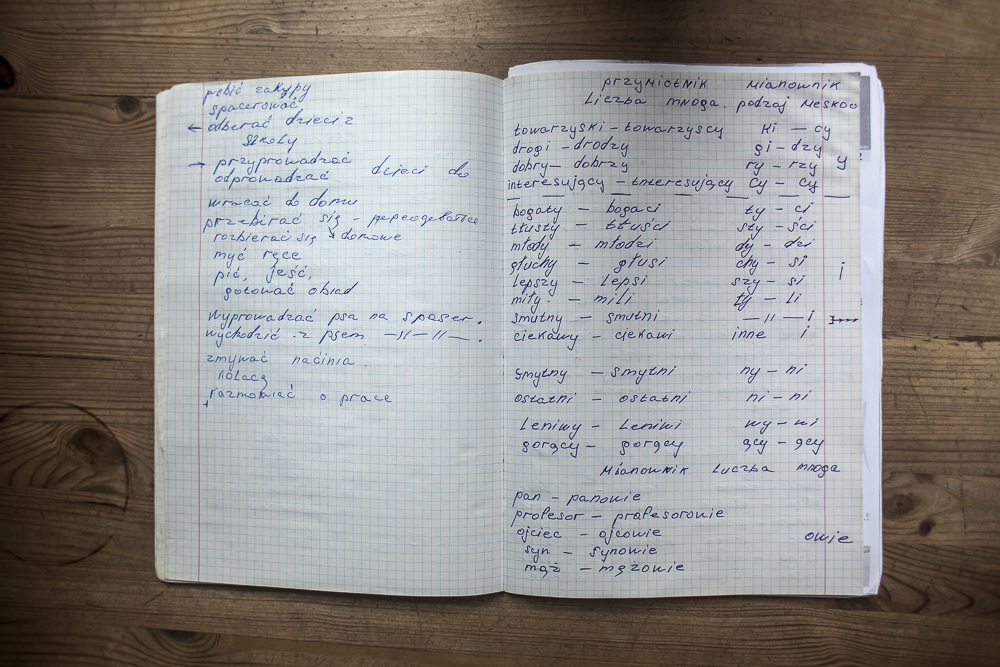 robić zakupy
spacerować
← odberać dzieci z
szkoły
→ przyprowadzać
odprowadzać dzieci do
wracać do domu
przebirać się -
rozbierać się domowe
myć ręce
pić, jeść,
gotować obiad
wyprowadzać psa na spaser.
wychodzić z psem —//—//—.
zmywać naćinia.
kolacą
rozmowiać o prace
przymiotnik mianownik
Liczba mnoga. rodzaj meskoo
towarzyski - towarzyscy ki — cy
drogi - drodzy gi - dzy
dobry - dobrzy ry - rzy y
interesujący - interesujący cy - cy
bogaty - bogaci ty - ci
tłusty - tłuści sty - ści
młody - młodzi dy - dzi
głuchy - głusi chy - si i
lepszy - lepsi szy - si
miły - mili ły - li
smutny - smutni —//— i
ciekawy - ciekawi inne i
smytny - smytni ny - ni
ostatni - ostatni ni - ni
Leniwy - Leniwi wy - wi
gorący - gorący ący - ący
Mianownik Luczba mnoga
pan - panowie
profesor - profesorowie
ojciec - ojcowie owie
syn - synowie
mąż - mężowie